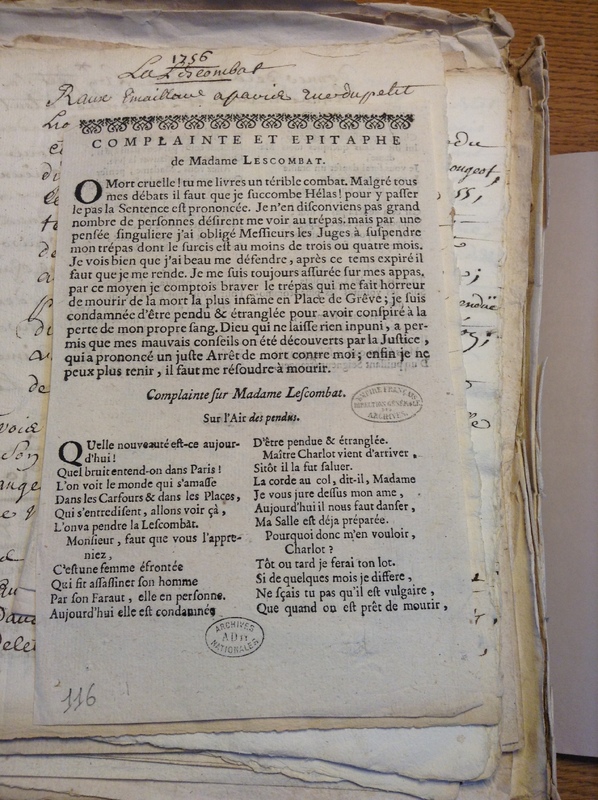 1756
La Lescombat
Raux Emailleur a paris rue du petit
Lio
COMPLAINTE ET EPITAPHE
de Madame LESCOMBAT.
O Mort cruelle ! tu me livres un térible combat. Malgré tous
mes débats il faut que je succombe Hélas ! pour y passer
le pas la Sentence est prononcée. Je n'en disconviens pas grand
nombre de personnes désirent me voir au trépas, mais par une
pensée singuliere j'ai obligé Messieurs les Juges à suspendre
mon trépas dont le surcis est au moins de trois ou quatre mois.
Je vois bien que j'ai beau me défendre, après ce tems expiré il
faut que je me rende. Je me suis toujours assurée sur mes appas,
par ce moyen je comptois braver le trépas qui me fait horreur
de mourir de la mort la plus infame en Place de Grêve ; je suis
condamnée d'être pendu & étranglée pour avoir conspiré à la
perte de mon propre sang. Dieu qui ne laisse rien inpuni, a per-
mis que mes mauvais conseils on été découverts par la Justice,
qui a prononcé un juste Arrêt de mort contre moi ; enfin je ne
peux plus tenir, il faut me résoudre à mourir.
Complainte sur Madame Lescombat.
Sur l'Air des pendus.
QUelle nouveauté est-ce aujour-
d'hui !
Quel bruit entend-on dans Paris !
L'on voit le monde qui s'amasse
Dans les Carfours & dans les Places,
Qui s'entredisent, allons voir çà,
L'on va pendre la Lescombât.
Monsieur, faut que vous l'appre-
niez,
C'est une femme éfrontée
Qui fit assassiner son homme
Par son Faraut, elle en personne.
Aujourd'hui elle est condamnée
D'être pendue & étranglée.
Maître Charlot vient d'arriver,
Sitôt il la fut saluer.
La corde au col, dit-il, Madame
Je vous jure dessus mon ame,
Aujourd'hui il nous faut danser,
Ma Salle est déja préparée.
Pourquoi donc m'en vouloir,
Charlot ?
Tôt ou tard je ferai ton lot.
Si de quelques mois je differe,
Ne sçais tu pas qu'il est vulgaire,
Que quand on est prêt de mourir,
EMPIRE FRANÇAIS
DIRECTION GÉNÉRALE
DES
ARCHIVES
ARCHIVES
AD III
NATIONALES
116